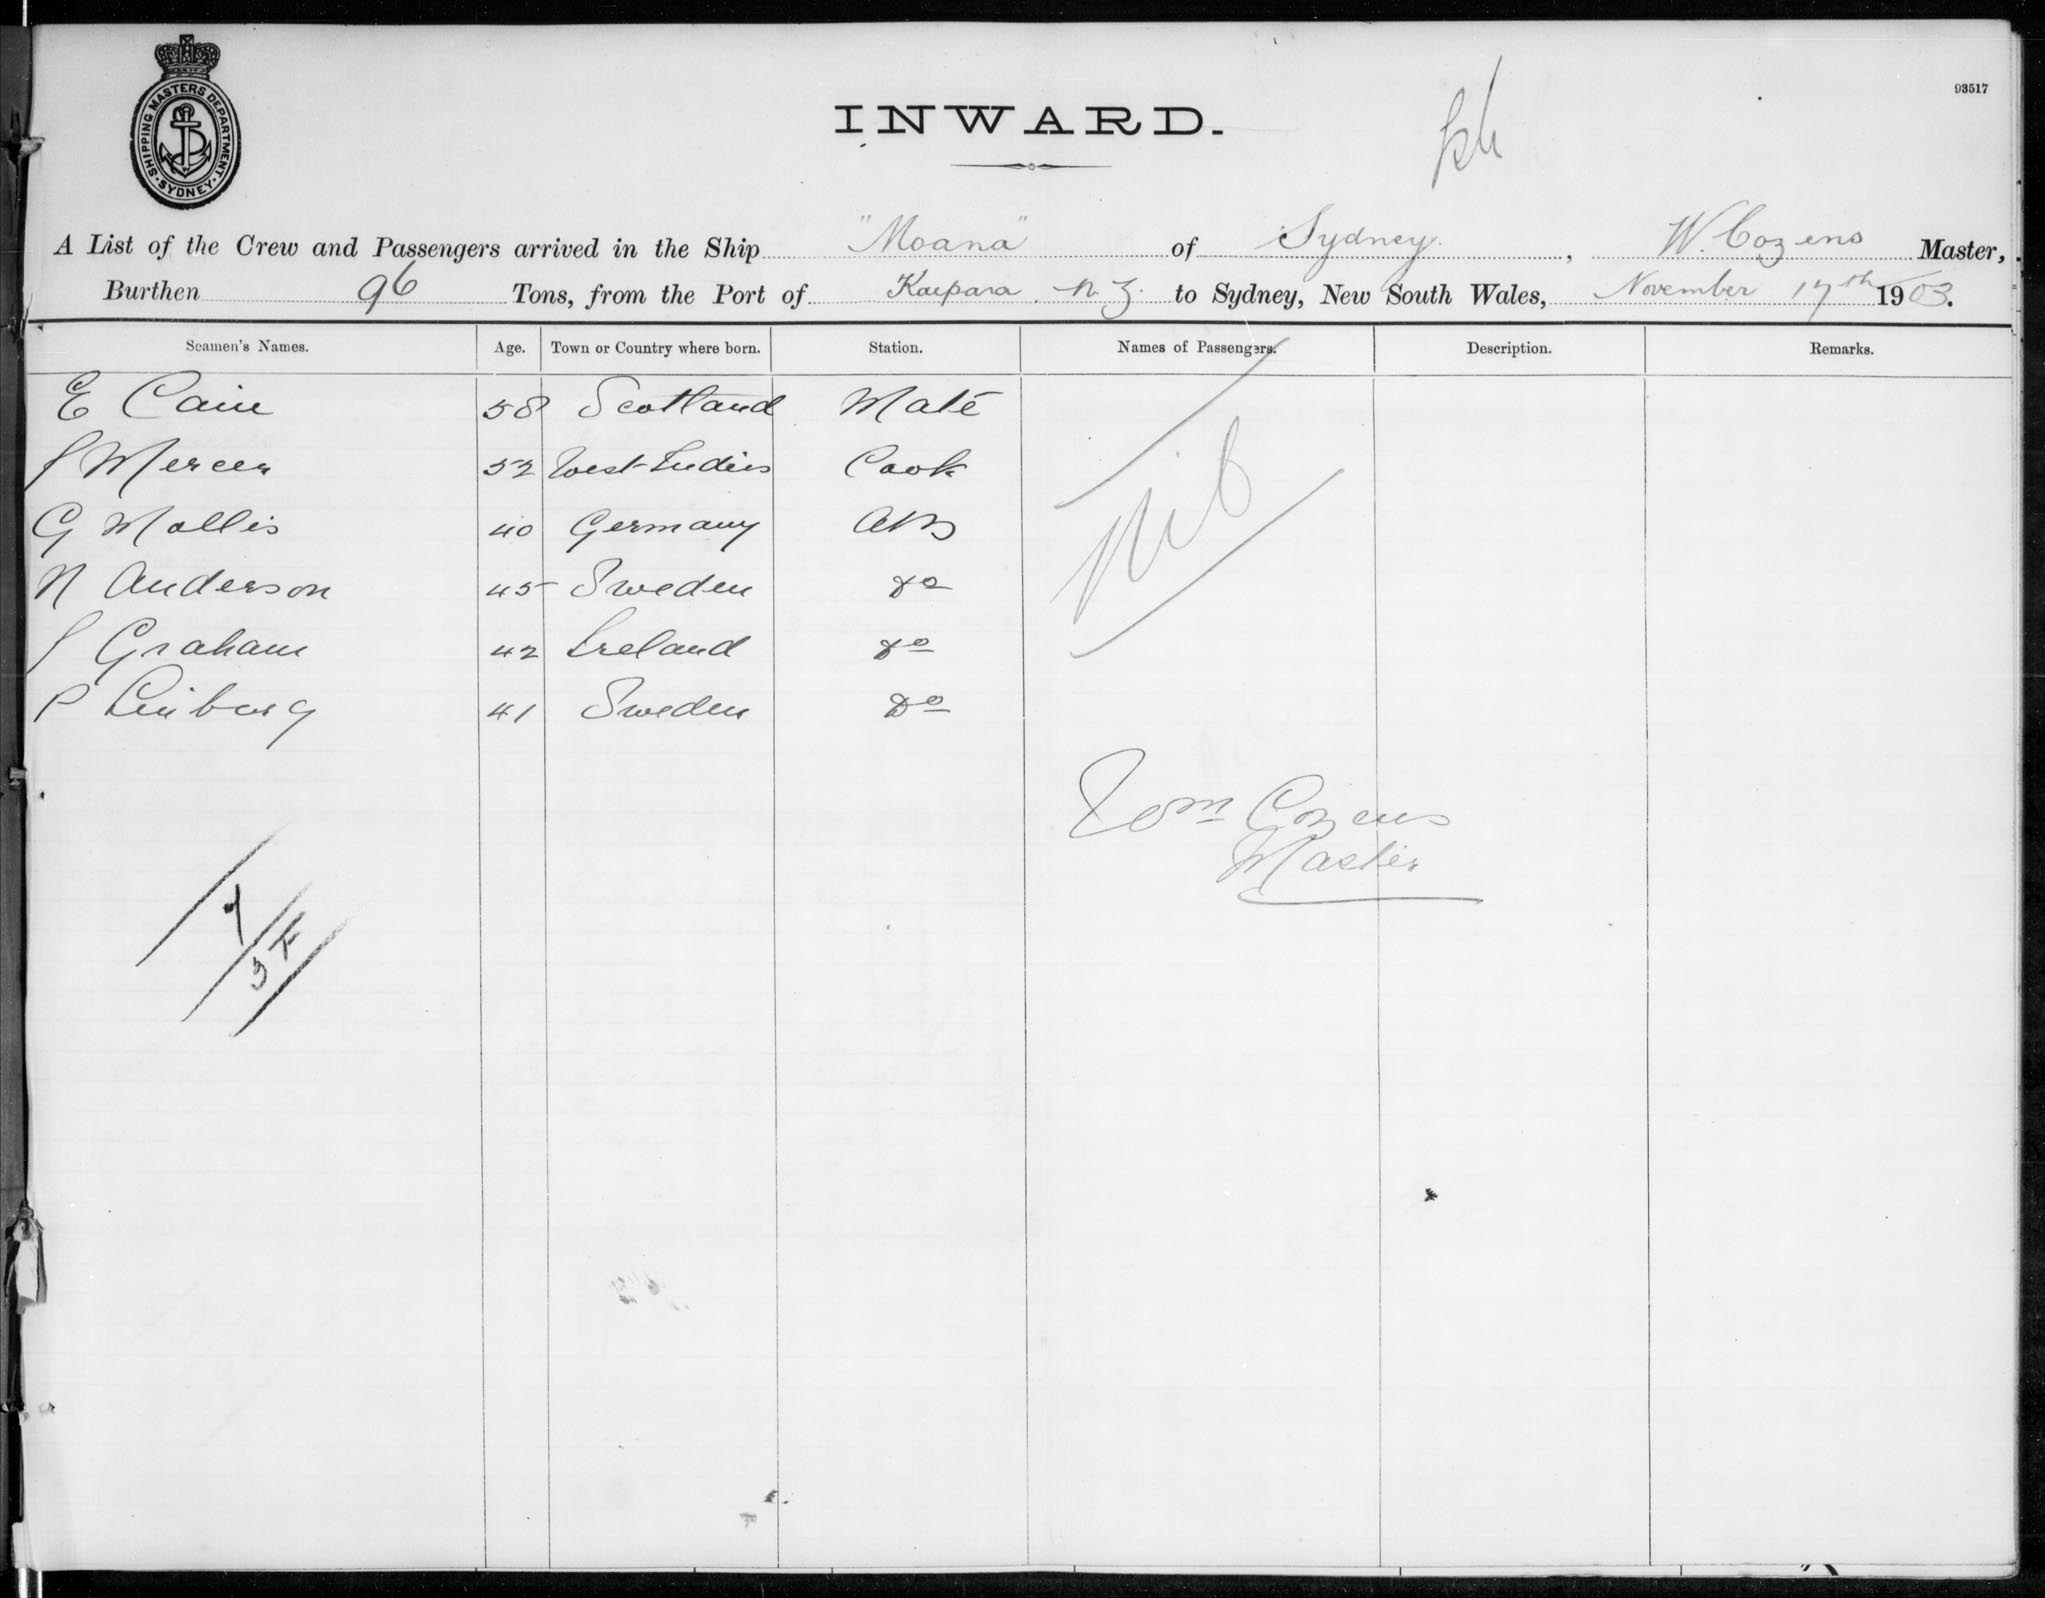 SHIPPING MASTERS DEPARTMENT
SYDNEY
93517
INWARD.
A List of the Crew and Passengers arrived in the Ship "Moana" of Sydney, W. Cozens Master,
Burthen 96 Tons, from the Port of Kaipara N.Z. to Sydney, New South Wales, November 17th 1903.
Seamen's Names. Age. Town or Country where born. Station. Names of Passengers. Description. Remarks.
E Cain 58 Scotland Mate
J Mercer 52 West Indies Cook
G Mollis 40 Germany AB
N Anderson 45 Sweden do
J Graham 42 Ireland do
P Linburg 41 Sweden Do
Nil
Wm Cozens
Master
7
3F